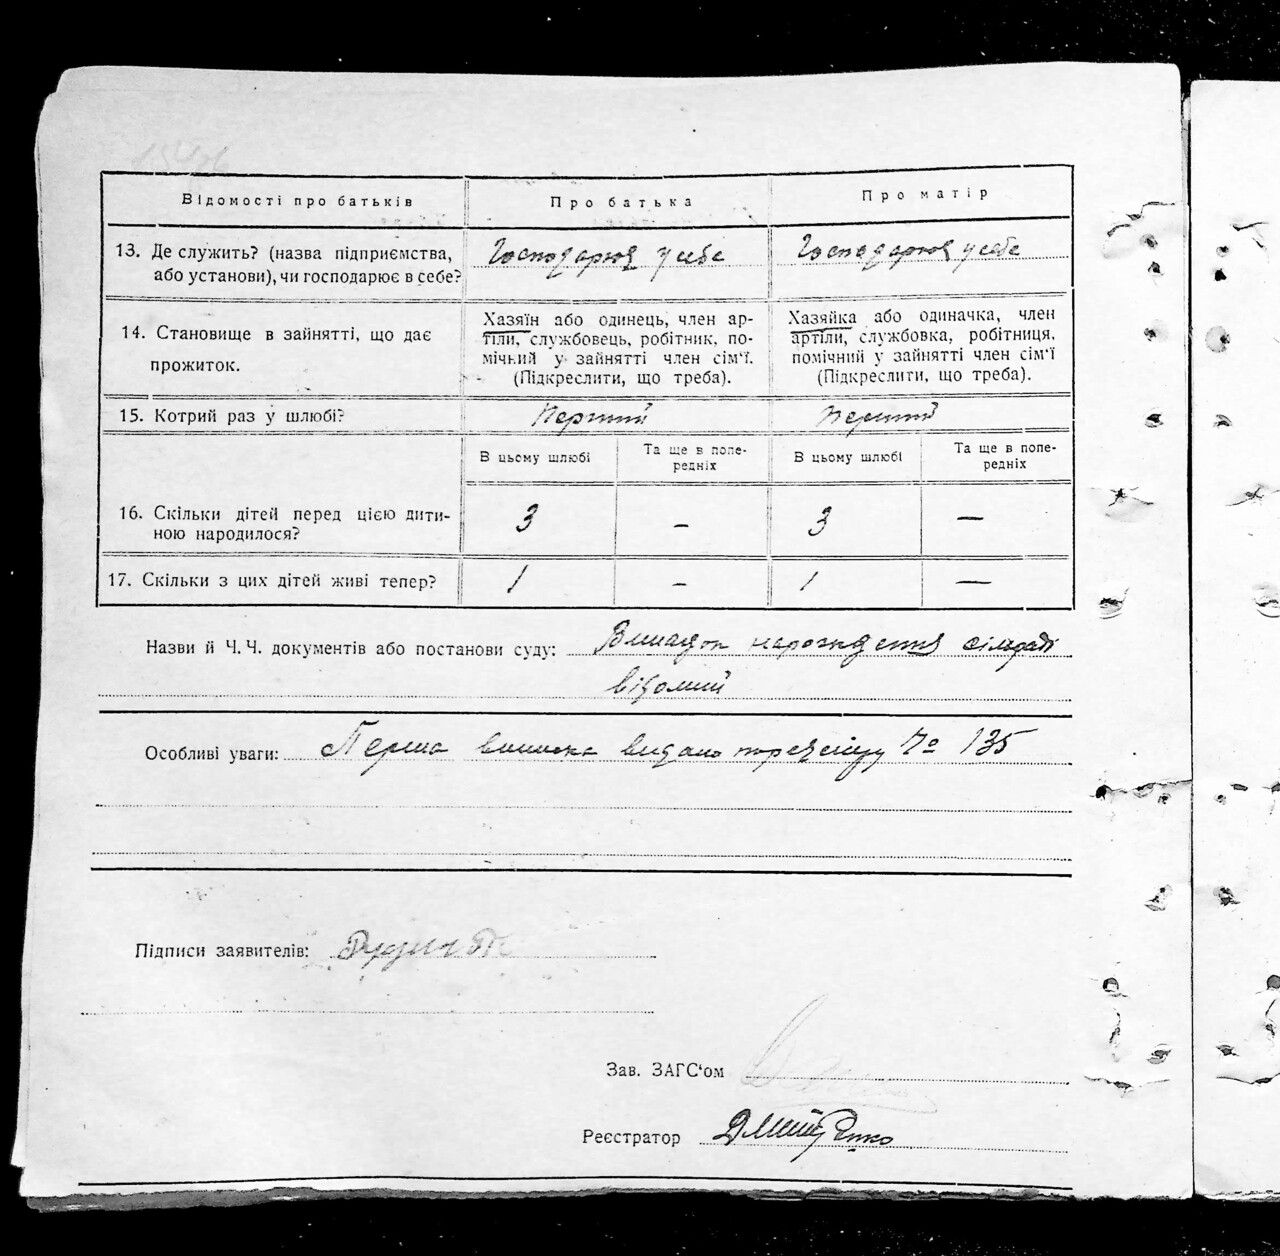 Відомості про батьків
Про батька
Про матір
13. Де служить? (назва підприємства,
або установи), чи господарює в себе?
Господарює у себе
Господарює у себе
14. Становище в зайнятті, що дає
прожиток.
Хазяїн або одинець, член ар-
тіли, службовець, робітник, по-
мічний у зайнятті член сім'ї.
(Підкреслити, що треба).
Хазяйка або одиначка, член
артіли, службовка, робітниця,
помічний у зайнятті член сім'ї
(Підкреслити, що треба).
15. Котрий раз у шлюбі?
Перший
Перший
В цьому шлюбі
Та ще в попе-
редніх
В цьому шлюбі
Та ще в попе-
редніх
16. Скільки дітей перед цією дити-
ною народилося?
3
–
3
—
17. Скільки з цих дітей живі тепер?
1
–
1
—
Назви й Ч. Ч. документів або постанови суду: Випадок народження сільраді
відомий
Особливі уваги: Перша виписка видана по реєстру № 135
Підписи заявителів:
Зав. ЗАГС'ом
Реєстратор Дмитренко